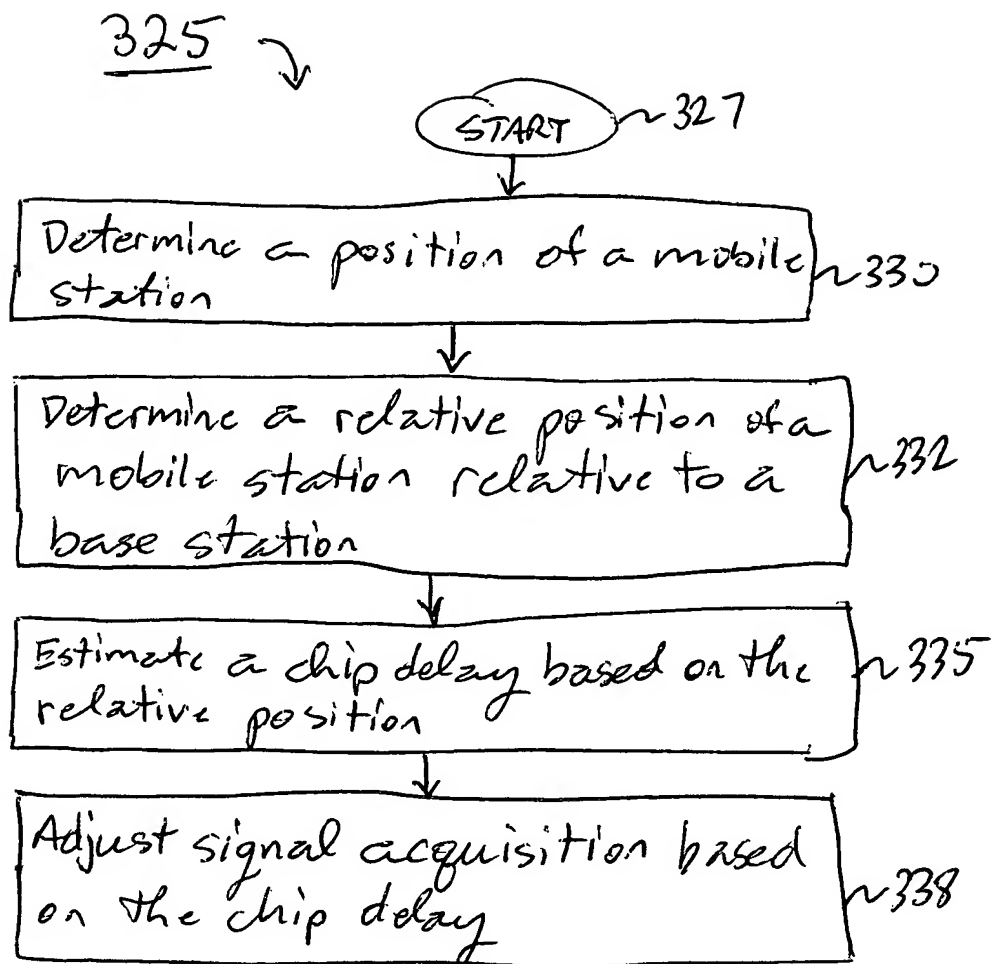 325
START ~327
Determine a position of a mobile
station
~330
Determine a relative position of a
mobile station relative to a
base station
~332
Estimate a chip delay based on the
relative position
~335
Adjust signal acquisition based
on the chip delay
~338